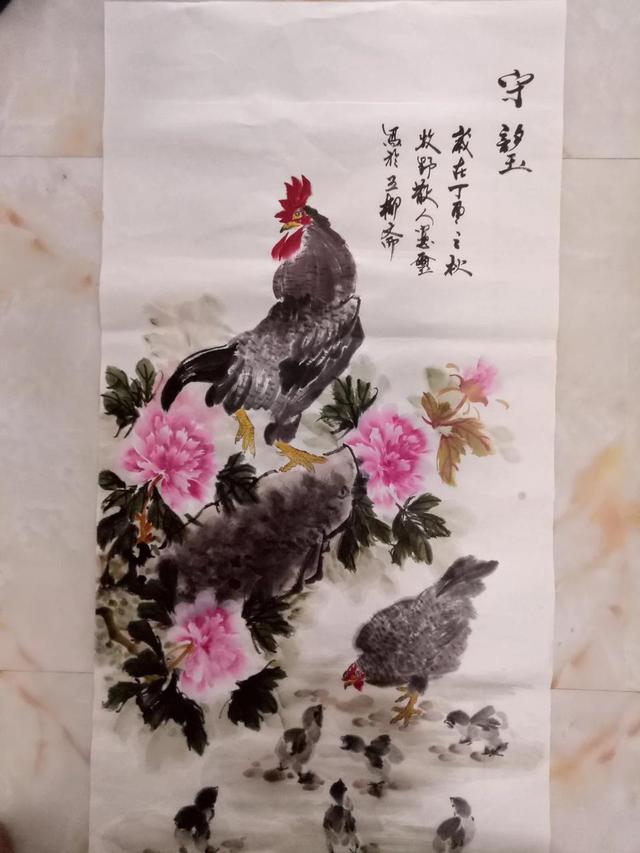 守望
歲在丁酉之秋
牧野散人墨
寫於五柳斋